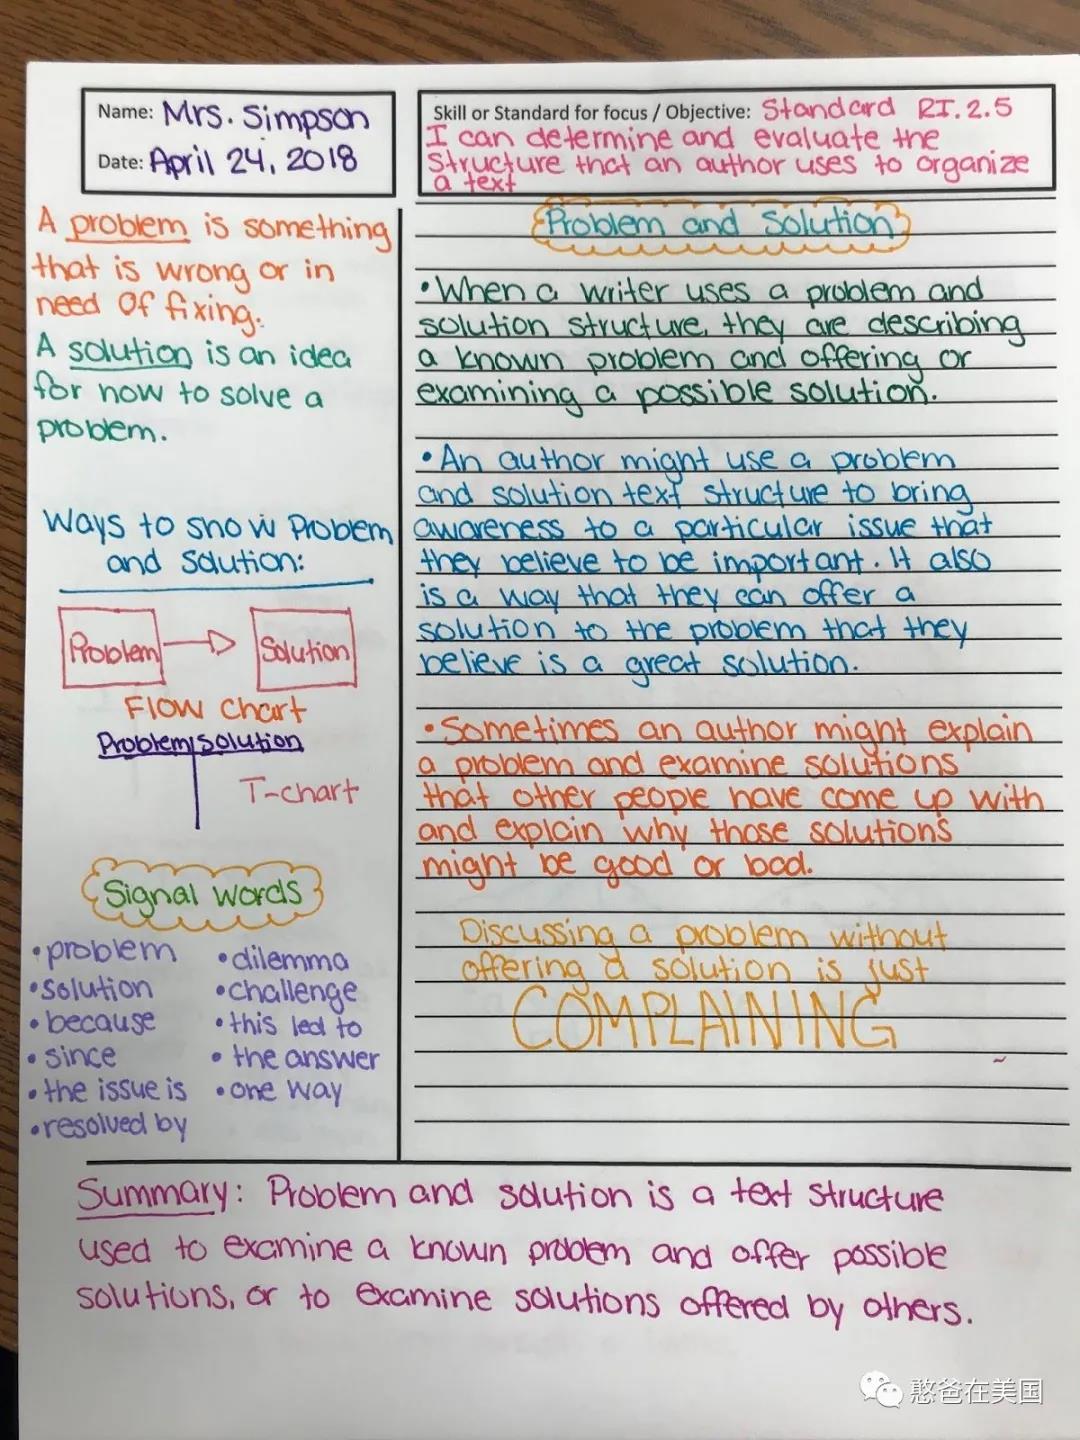 Name: Mrs. Simpson
Date: April 24, 2018
Skill or Standard for focus / Objective: Standard RI.2.5
I can determine and evaluate the
structure that an author uses to organize
a text
A problem is something
that is wrong or in
need of fixing.
A solution is an idea
for how to solve a
problem.
Ways to show Problem
and Solution:
Problem
Solution
Flow Chart
Problem Solution
T-chart
Signal Words
• problem
• solution
• because
• since
• the issue is
• resolved by
• dilemma
• challenge
• this led to
• the answer
• one way
Problem and Solution
• When a writer uses a problem and
solution structure, they are describing
a known problem and offering or
examining a possible solution.
• An author might use a problem
and solution text structure to bring
awareness to a particular issue that
they believe to be important. It also
is a way that they can offer a
solution to the problem that they
believe is a great solution.
• Sometimes an author might explain
a problem and examine solutions
that other people have come up with
and explain why those solutions
might be good or bad.
Discussing a problem without
offering a solution is just
COMPLAINING
Summary: Problem and solution is a text structure
used to examine a known problem and offer possible
solutions, or to examine solutions offered by others.
憨爸在美国